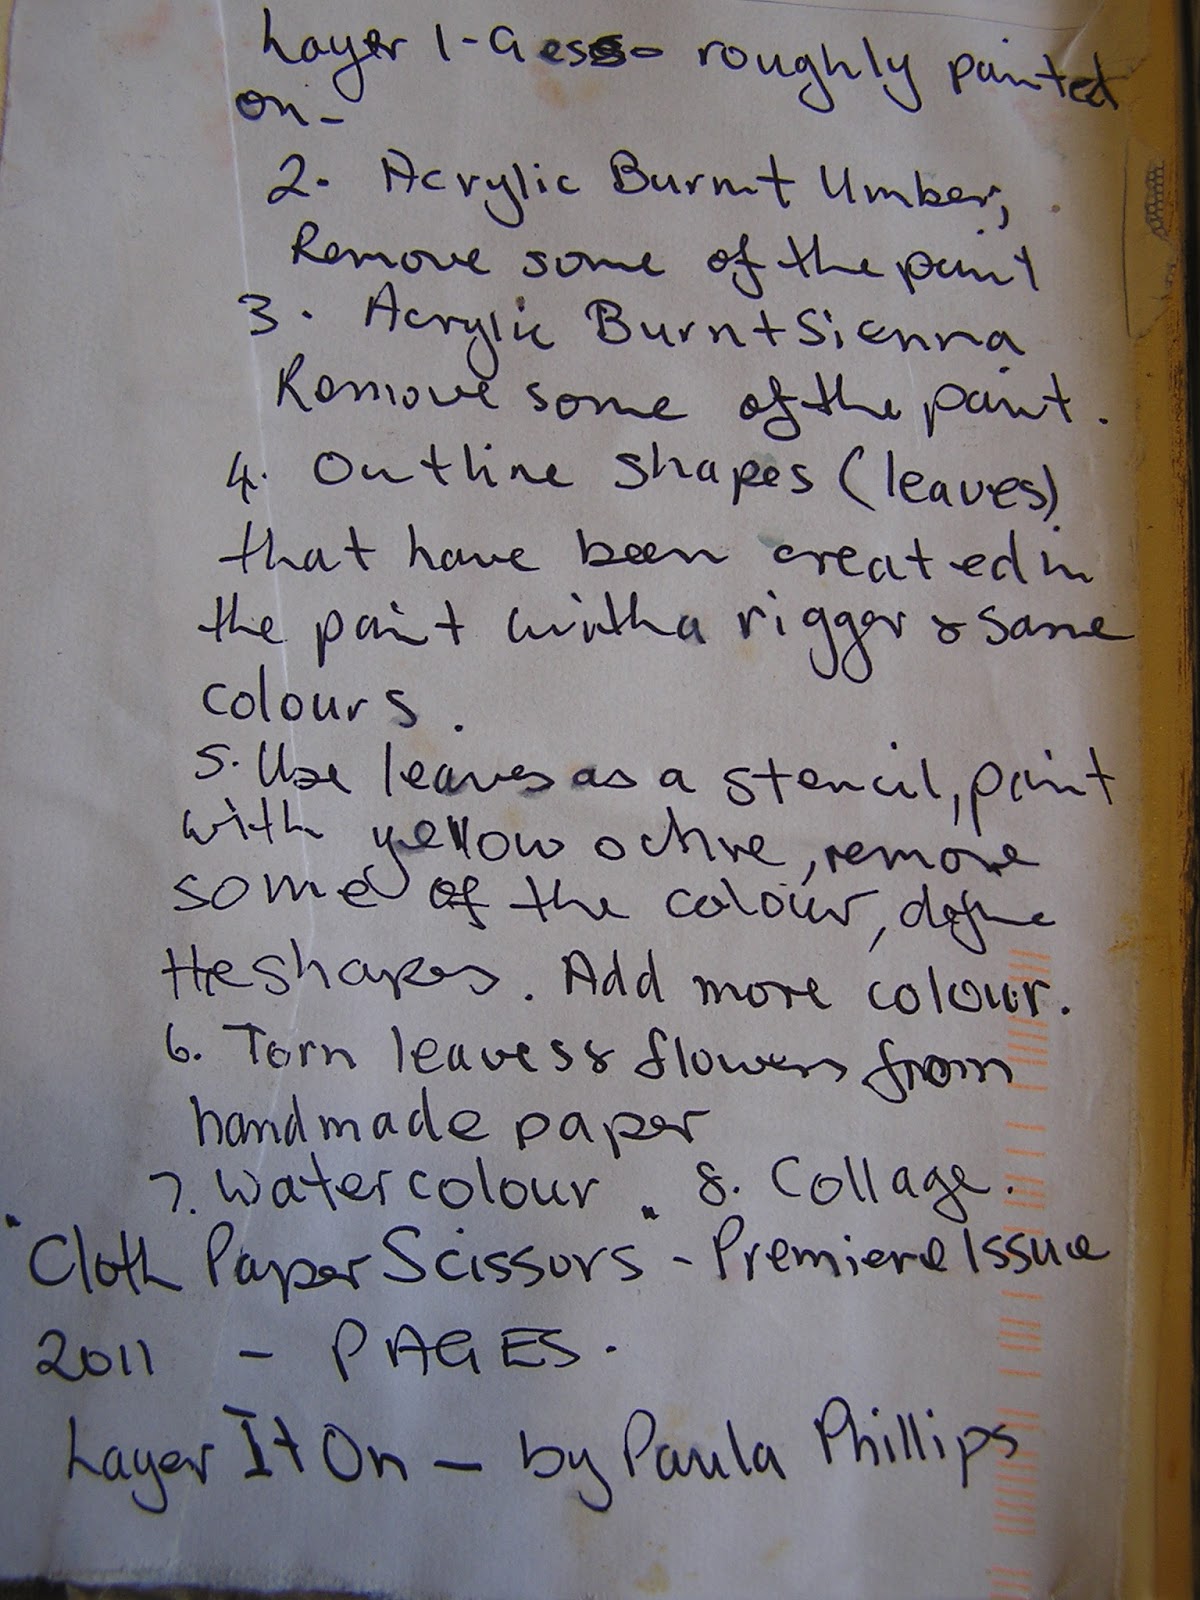 Layer 1 - Gesso - roughly painted
on -
2. Acrylic Burnt Umber,
Remove some of the paint
3. Acrylic Burnt Sienna
Remove some of the paint.
4. Outline shapes (leaves)
that have been created in
the paint with a rigger & same
colours.
5. Use leaves as a stencil, paint
with yellow ochre, remove
some of the colour, define
the shapes. Add more colour.
6. Torn leaves & flowers from
handmade paper
7. Watercolour 8. Collage.
"Cloth Paper Scissors" - Premiere Issue
2011 - PAGES.
Layer It On - by Paula Phillips